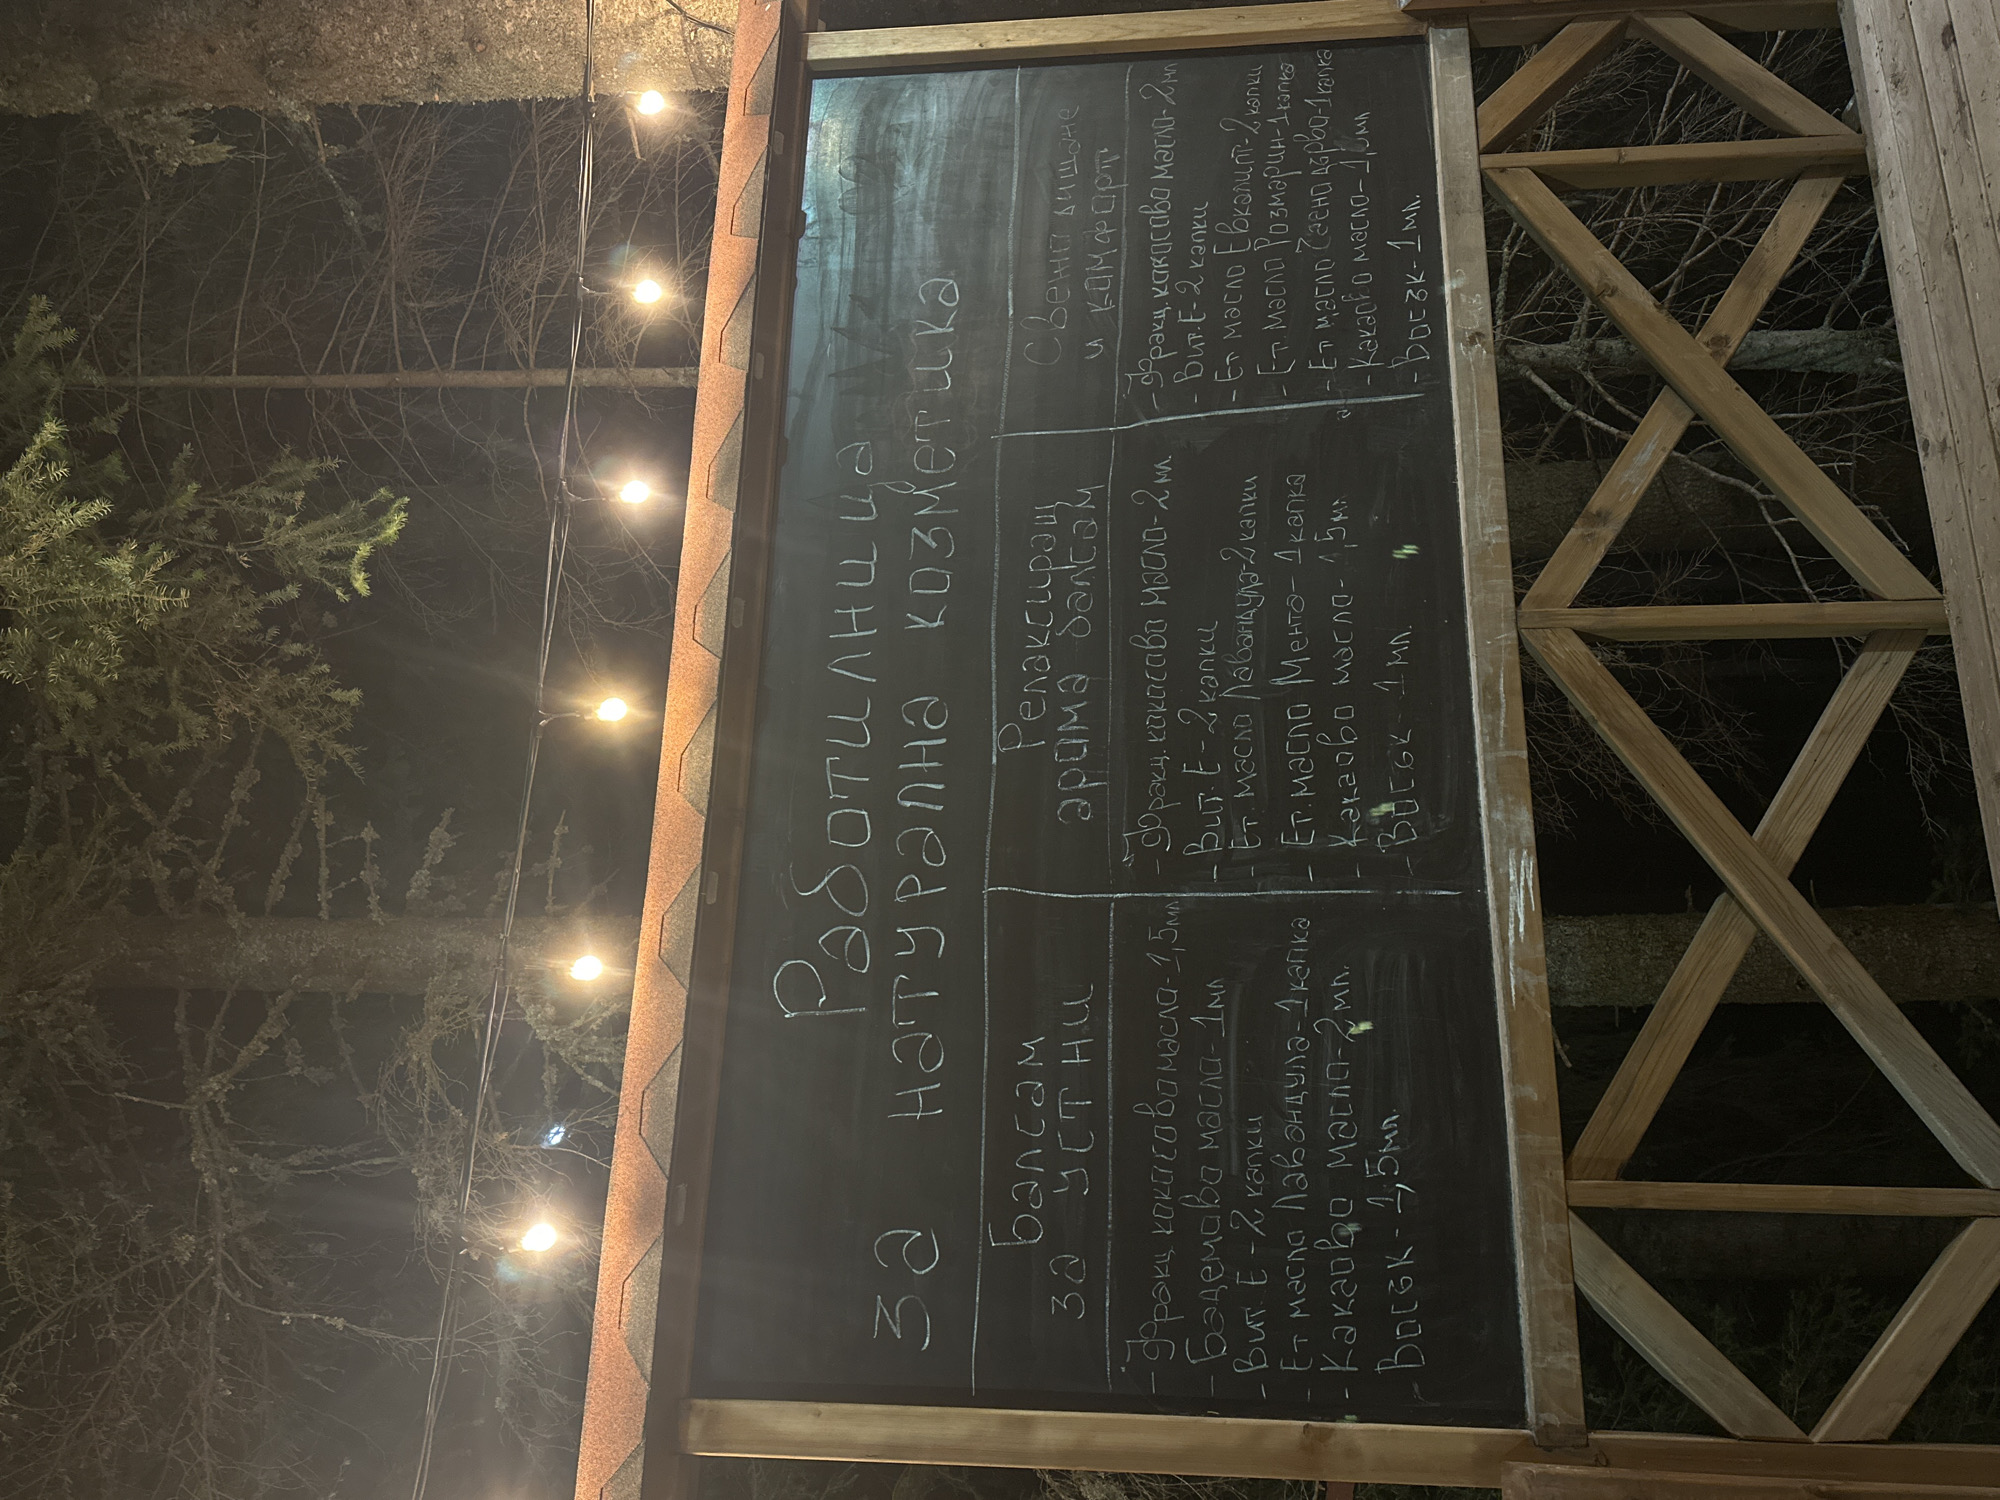 Работилница
за натурална козметика
Балсам
за устни
- Фракц. кокосово масло - 1,5 мл
- Бадемово масло - 1 мл
- Вит. Е - 2 капки
- Ет масло Лавандула - 1 капка
- Какаово масло - 2 мл.
- Восък - 1,5 мл.
Релаксиращ
арома балсам
- Фракц. кокосово масло - 2 мл
- Вит. Е - 2 капки
- Ет масло Лавандула - 2 капки
- Ет. масло Мента - 1 капка
- Какаово масло - 1,5 мл
- Восък - 1 мл.
Свежо дишане
и комфорт
- Фракц. кокосово масло - 2 мл
- Вит. Е - 2 капки
- Ет масло Евкалипт - 2 капки
- Ет масло Розмарин - 1 капка
- Ет масло Чаено дърво - 1 капка
- Какаово масло - 1 мл
- Восък - 1 мл.